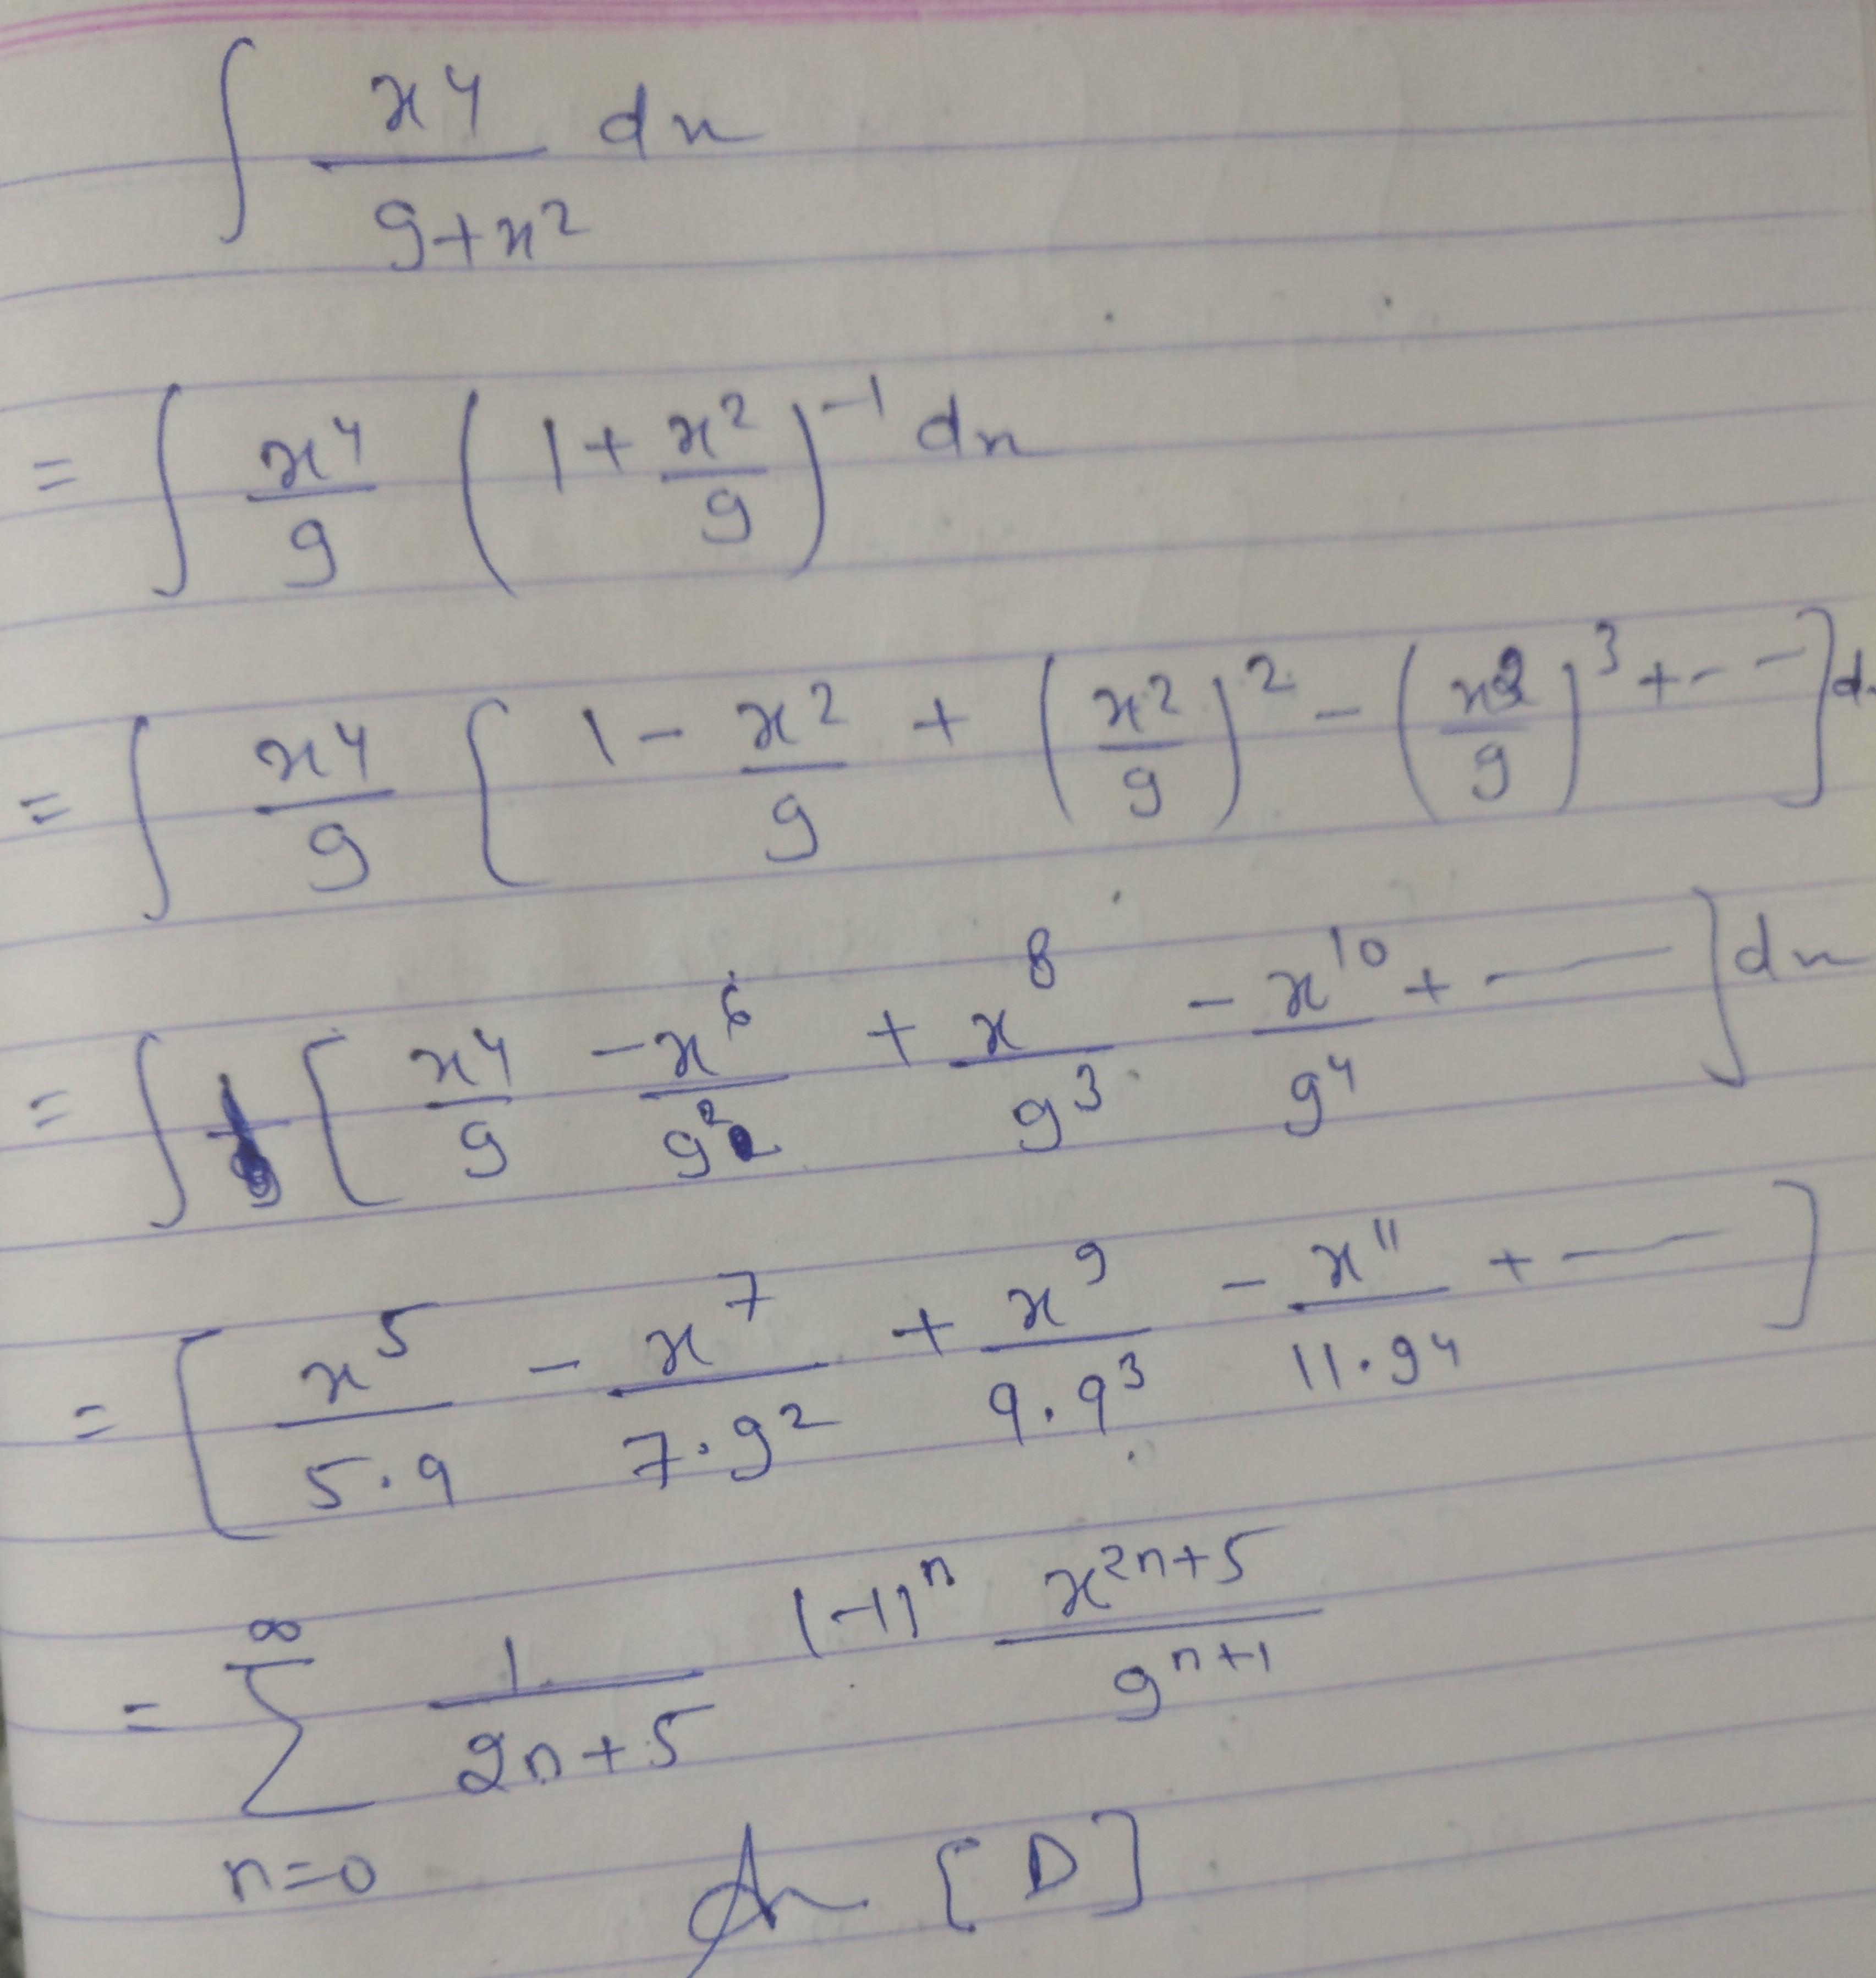 ∫ x⁴/(9+x²) dx
= ∫ x⁴/9 (1 + x²/9)⁻¹ dx
= ∫ x⁴/9 [1 - x²/9 + (x²/9)² - (x²/9)³ + - -] d
= ∫ [x⁴/9 - x⁶/9² + x⁸/9³ - x¹⁰/9⁴ + - —] dx
= [x⁵/(5·9) - x⁷/(7·9²) + x⁹/(9·9³) - x¹¹/(11·9⁴) + - —]
= ∞∑n=0 1/(2n+5) (-1)ⁿ x²ⁿ⁺⁵/9ⁿ⁺¹
An [D]